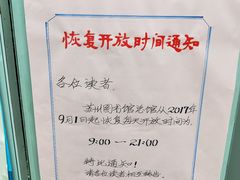 恢复开放时间通知
各位读者
苏州图书馆总馆从2017年
9月1日起恢复每天开放时间为
9:00 — 21:00
特此通知!
请各位读者相互转告